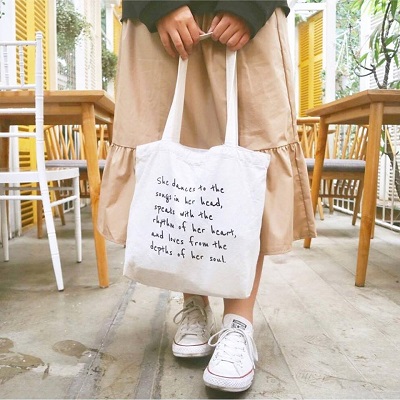 She dances to the
songs in her head,
speaks with the
rhythm of her heart,
and loves from the
depths of her soul.